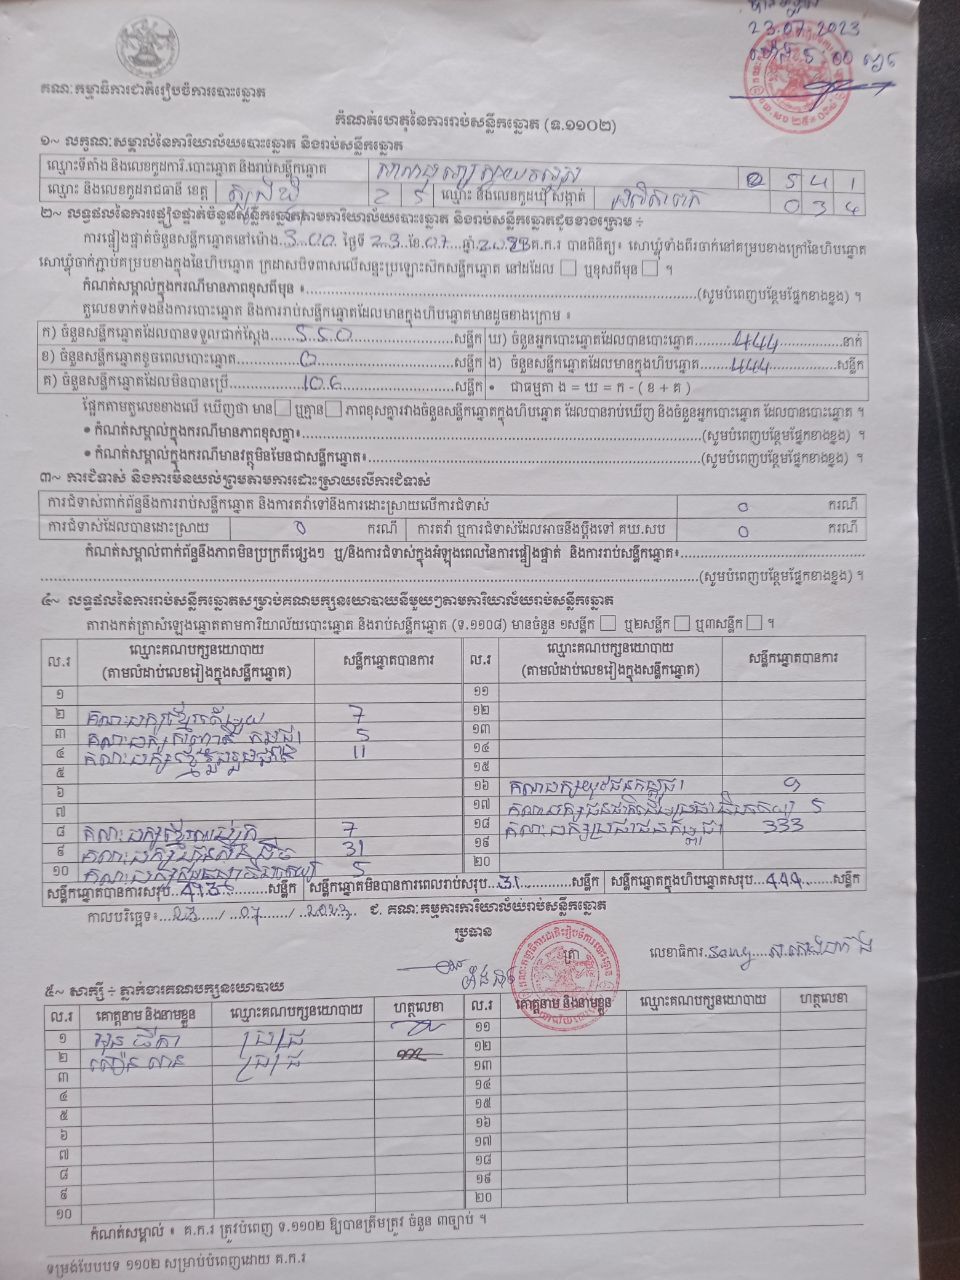 23.07.2023
គណៈកម្មាធិការជាតិរៀបចំការបោះឆ្នោត
កំណត់ហេតុនៃការរាប់សន្លឹកឆ្នោត (ទ.១១០២)
១~ លក្ខណៈសម្គាល់នៃការិយាល័យបោះឆ្នោត និងរាប់សន្លឹកឆ្នោត
ឈ្មោះទីតាំង និងលេខកូដការិ.បោះឆ្នោត និងរាប់សន្លឹកឆ្នោត 0 5 4 1
ឈ្មោះ និងលេខកូដរាជធានី ខេត្ត ឈ្មោះ និងលេខកូដឃុំ សង្កាត់ 0 3 4
២~ លទ្ធផលនៃការផ្ទៀងផ្ទាត់ចំនួនសន្លឹកឆ្នោតតាមការិយាល័យបោះឆ្នោត និងរាប់សន្លឹកឆ្នោតដូចខាងក្រោម ÷
ការផ្ទៀងផ្ទាត់ចំនួនសន្លឹកឆ្នោតនៅម៉ោង..3.00..ថ្ងៃទី 23 ខែ.07...ឆ្នាំ.2023 គ.ក.រ បានពិនិត្យ៖ សោឃ្លុំទាំងពីរចាក់នៅគម្របខាងក្រៅនៃហិបឆ្នោត
សោឃ្លុំចាក់ភ្ជាប់គម្របខាងក្នុងនៃហិបឆ្នោត ក្រដាសបិទពាសលើសន្ទះប្រឡោះស៊កសន្លឹកឆ្នោត នៅដដែល ☐ ឬខុសពីមុន ☐ ។
កំណត់សម្គាល់ក្នុងករណីមានភាពខុសពីមុន ៖...............(សូមបំពេញបន្ថែមផ្នែកខាងខ្នង) ។
តួលេខទាក់ទងនឹងការបោះឆ្នោត និងការរាប់សន្លឹកឆ្នោតដែលមានក្នុងហិបឆ្នោតមានដូចខាងក្រោម ៖
ក) ចំនួនសន្លឹកឆ្នោតដែលបានទទួលជាក់ស្តែង......550......សន្លឹក ឃ) ចំនួនអ្នកបោះឆ្នោតដែលបានបោះឆ្នោត......444......នាក់
ខ) ចំនួនសន្លឹកឆ្នោតខូចពេលបោះឆ្នោត......0......សន្លឹក ង) ចំនួនសន្លឹកឆ្នោតដែលមានក្នុងហិបឆ្នោត......444......សន្លឹក
គ) ចំនួនសន្លឹកឆ្នោតដែលមិនបានប្រើ......106......សន្លឹក • ជាធម្មតា ង = ឃ = ក - ( ខ + គ )
ផ្អែកតាមតួលេខខាងលើ ឃើញថា មាន ☐ ឬគ្មាន ☐ ភាពខុសគ្នារវាងចំនួនសន្លឹកឆ្នោតក្នុងហិបឆ្នោត ដែលបានរាប់ឃើញ និងចំនួនអ្នកបោះឆ្នោត ដែលបានបោះឆ្នោត ។
• កំណត់សម្គាល់ក្នុងករណីមានភាពខុសគ្នា៖...............(សូមបំពេញបន្ថែមផ្នែកខាងខ្នង) ។
• កំណត់សម្គាល់ក្នុងករណីមានវត្ថុមិនមែនជាសន្លឹកឆ្នោត៖...............(សូមបំពេញបន្ថែមផ្នែកខាងខ្នង) ។
៣~ ការជំទាស់ និងការមិនយល់ព្រមតាមការដោះស្រាយលើការជំទាស់
ការជំទាស់ពាក់ព័ន្ធនឹងការរាប់សន្លឹកឆ្នោត និងការតវ៉ាទៅនឹងការដោះស្រាយលើការជំទាស់ 0 ករណី
ការជំទាស់ដែលបានដោះស្រាយ 0 ករណី ការតវ៉ា ឬការជំទាស់ដែលអាចនឹងប្តឹងទៅ គឃ.សប 0 ករណី
កំណត់សម្គាល់ពាក់ព័ន្ធនឹងភាពមិនប្រក្រតីផ្សេងៗ ឬ/និងការជំទាស់ក្នុងអំឡុងពេលនៃការផ្ទៀងផ្ទាត់ និងការរាប់សន្លឹកឆ្នោត៖...............
...............(សូមបំពេញបន្ថែមផ្នែកខាងខ្នង) ។
៤~ លទ្ធផលនៃការរាប់សន្លឹកឆ្នោតសម្រាប់គណបក្សនយោបាយនីមួយៗតាមការិយាល័យរាប់សន្លឹកឆ្នោត
តារាងកត់ត្រាសំឡេងឆ្នោតតាមការិយាល័យបោះឆ្នោត និងរាប់សន្លឹកឆ្នោត (ទ.១១០៨) មានចំនួន ១សន្លឹក ☐ ឬ២សន្លឹក ☐ ឬ៣សន្លឹក ☐ ។
ល.រ ឈ្មោះគណបក្សនយោបាយ (តាមលំដាប់លេខរៀងក្នុងសន្លឹកឆ្នោត) សន្លឹកឆ្នោតបានការ ល.រ ឈ្មោះគណបក្សនយោបាយ (តាមលំដាប់លេខរៀងក្នុងសន្លឹកឆ្នោត) សន្លឹកឆ្នោតបានការ
១ ១១
២ គណៈបក្សខ្មែរតែមួយ 7 ១២
៣ គណៈបក្ស កម្ពុជា 5 ១៣
៤ គណៈបក្ស 11 ១៤
៥ ១៥
៦ ១៦ គណបក្សយុវជនកម្ពុជា 9
៧ ១៧ គណបក្សជនជាតិដើមប្រជាធិបតេយ្យ 5
៨ គណៈបក្ស 7 ១៨ គណៈបក្សប្រជាជនកម្ពុជា 333
៩ គណៈបក្សហ៊្វុនស៊ិនប៉ិច 31 ១៩
១០ គណៈបក្ស 5 ២០
សន្លឹកឆ្នោតបានការសរុប..413......សន្លឹក សន្លឹកឆ្នោតមិនបានការពេលរាប់សរុប..31......សន្លឹក សន្លឹកឆ្នោតក្នុងហិបឆ្នោតសរុប..444......សន្លឹក
កាលបរិច្ឆេទ៖...23...../...07...../...2023. ជ. គណៈកម្មការការិយាល័យរាប់សន្លឹកឆ្នោត
ប្រធាន
លេខាធិការ
ត្រា
៥~ សាក្សី ÷ ភ្នាក់ងារគណបក្សនយោបាយ
ល.រ គោត្តនាម និងនាមខ្លួន ឈ្មោះគណបក្សនយោបាយ ហត្ថលេខា ល.រ គោត្តនាម និងនាមខ្លួន ឈ្មោះគណបក្សនយោបាយ ហត្ថលេខា
១ ១១
២ ១២
៣ ១៣
៤ ១៤
៥ ១៥
៦ ១៦
៧ ១៧
៨ ១៨
៩ ១៩
១០ ២០
កំណត់សម្គាល់ ៖ គ.ក.រ ត្រូវបំពេញ ទ.១១០២ ឱ្យបានត្រឹមត្រូវ ចំនួន ៣ច្បាប់ ។
ទម្រង់បែបបទ ១១០២ សម្រាប់បំពេញដោយ គ.ក.រ